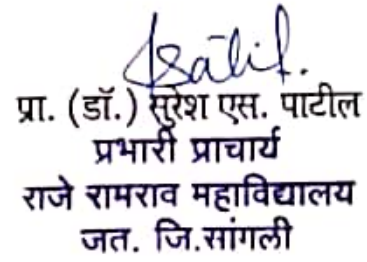 प्रा. (डॉ.) सुरेश एस. पाटील
प्रभारी प्राचार्य
राजे रामराव महाविद्यालय
जत. जि.सांगली